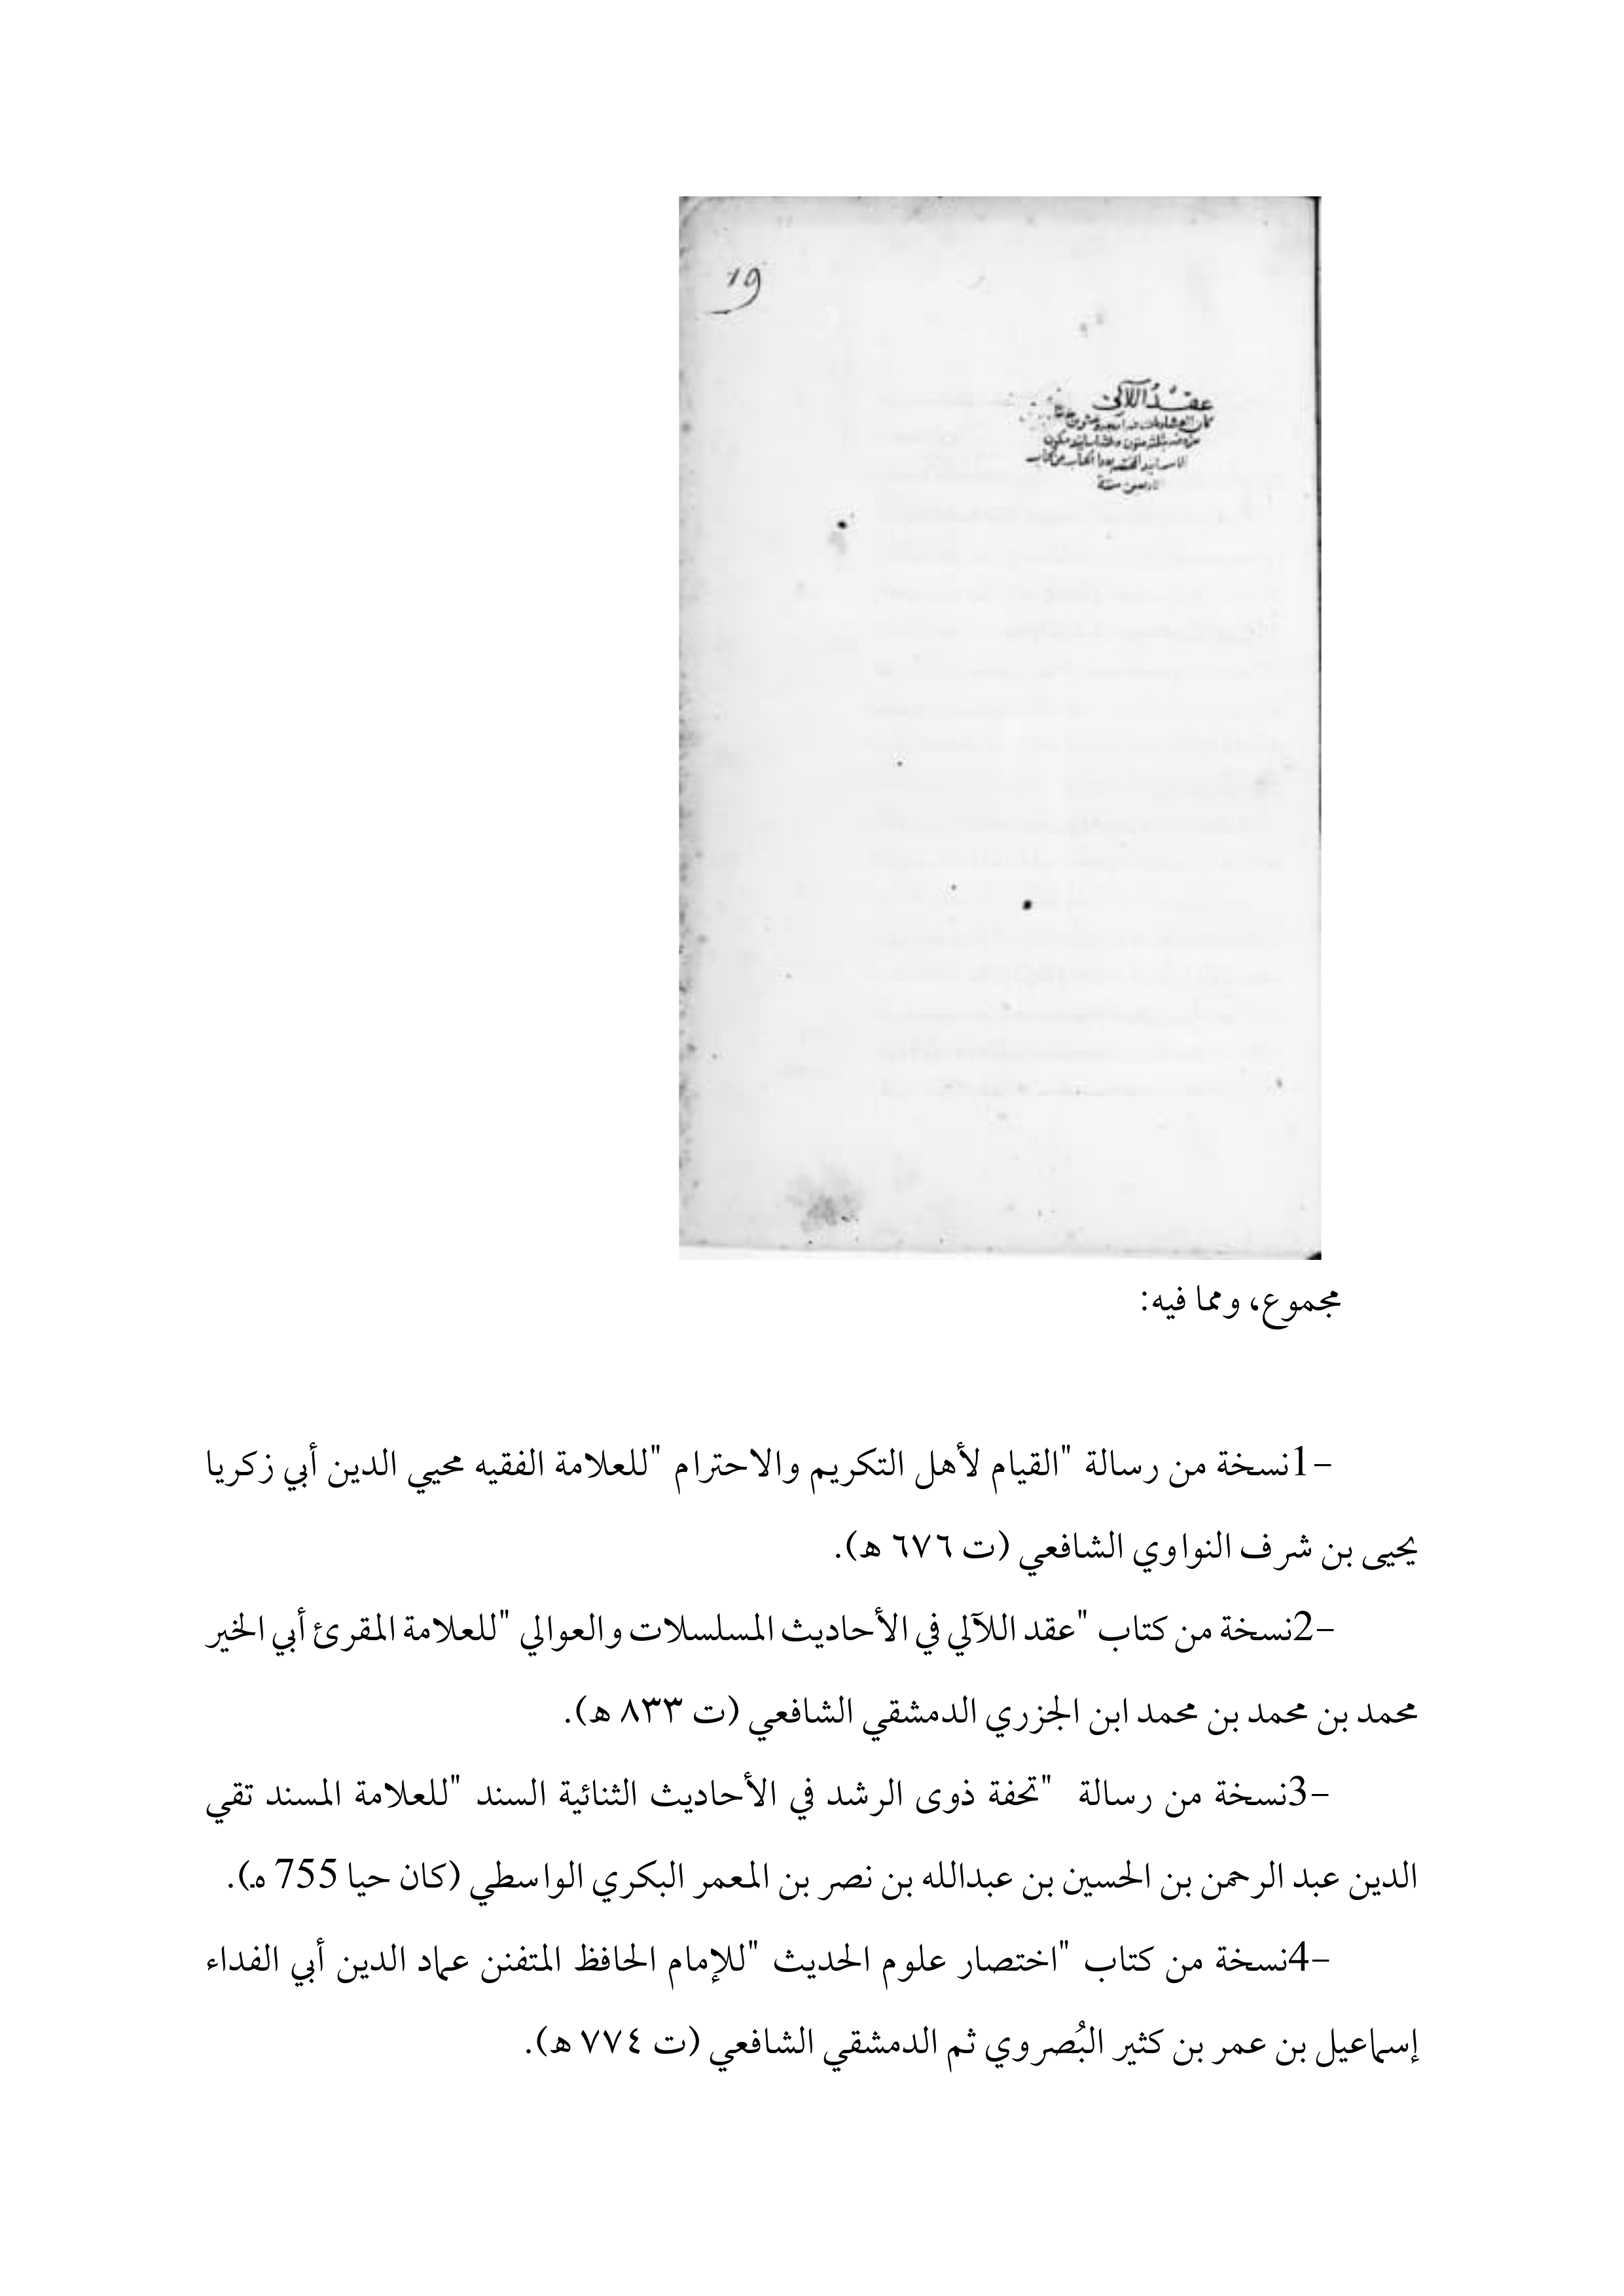 19
عقد اللآلي
مجموع، ومما فيه:
-1نسخة من رسالة "القيام لأهل التكريم والاحترام "للعلامة الفقيه محيي الدين أبي زكريا
يحيى بن شرف النواوي الشافعي (ت ٦٧٦ ه).
-2نسخة من كتاب "عقد اللآلي في الأحاديث المسلسلات والعوالي "للعلامة المقرئ أبي الخير
محمد بن محمد بن محمد ابن الجزري الدمشقي الشافعي (ت ٨٣٣ ه).
-3نسخة من رسالة "تحفة ذوى الرشد في الأحاديث الثنائية السند "للعلامة المسند تقي
الدين عبد الرحمن بن الحسين بن عبدالله بن نصر بن المعمر البكري الواسطي (كان حيا 755 ه).
-4نسخة من كتاب "اختصار علوم الحديث "للإمام الحافظ المتفنن عماد الدين أبي الفداء
إسماعيل بن عمر بن كثير البُصروي ثم الدمشقي الشافعي (ت ٧٧٤ ه).